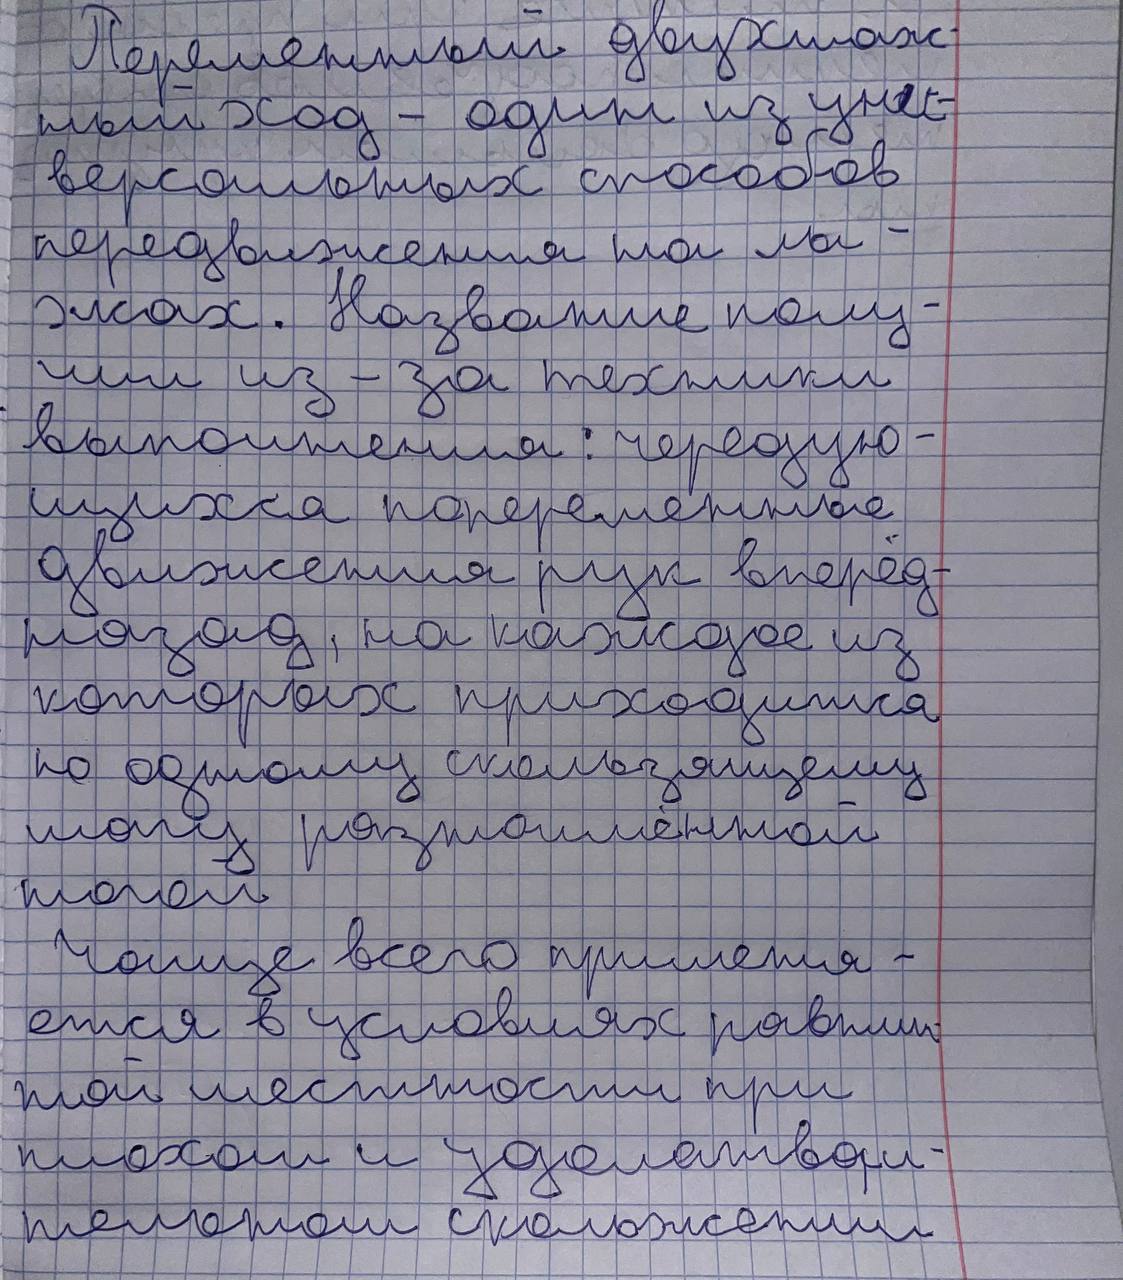 Переменный двухшаж-
ный ход - один из уни-
версальных способов
передвижения на лы-
жах. Название полу-
чил из-за техники
выполнения: чередую-
щихся попеременные
движения рук вперёд-
назад, на каждое из
которых приходится
по одному скользящему
шагу разноимённой
ногой
Чаще всего применя-
ется в условиях равнин
ной местности при
плохом и удовлетвори-
тельном скольжении